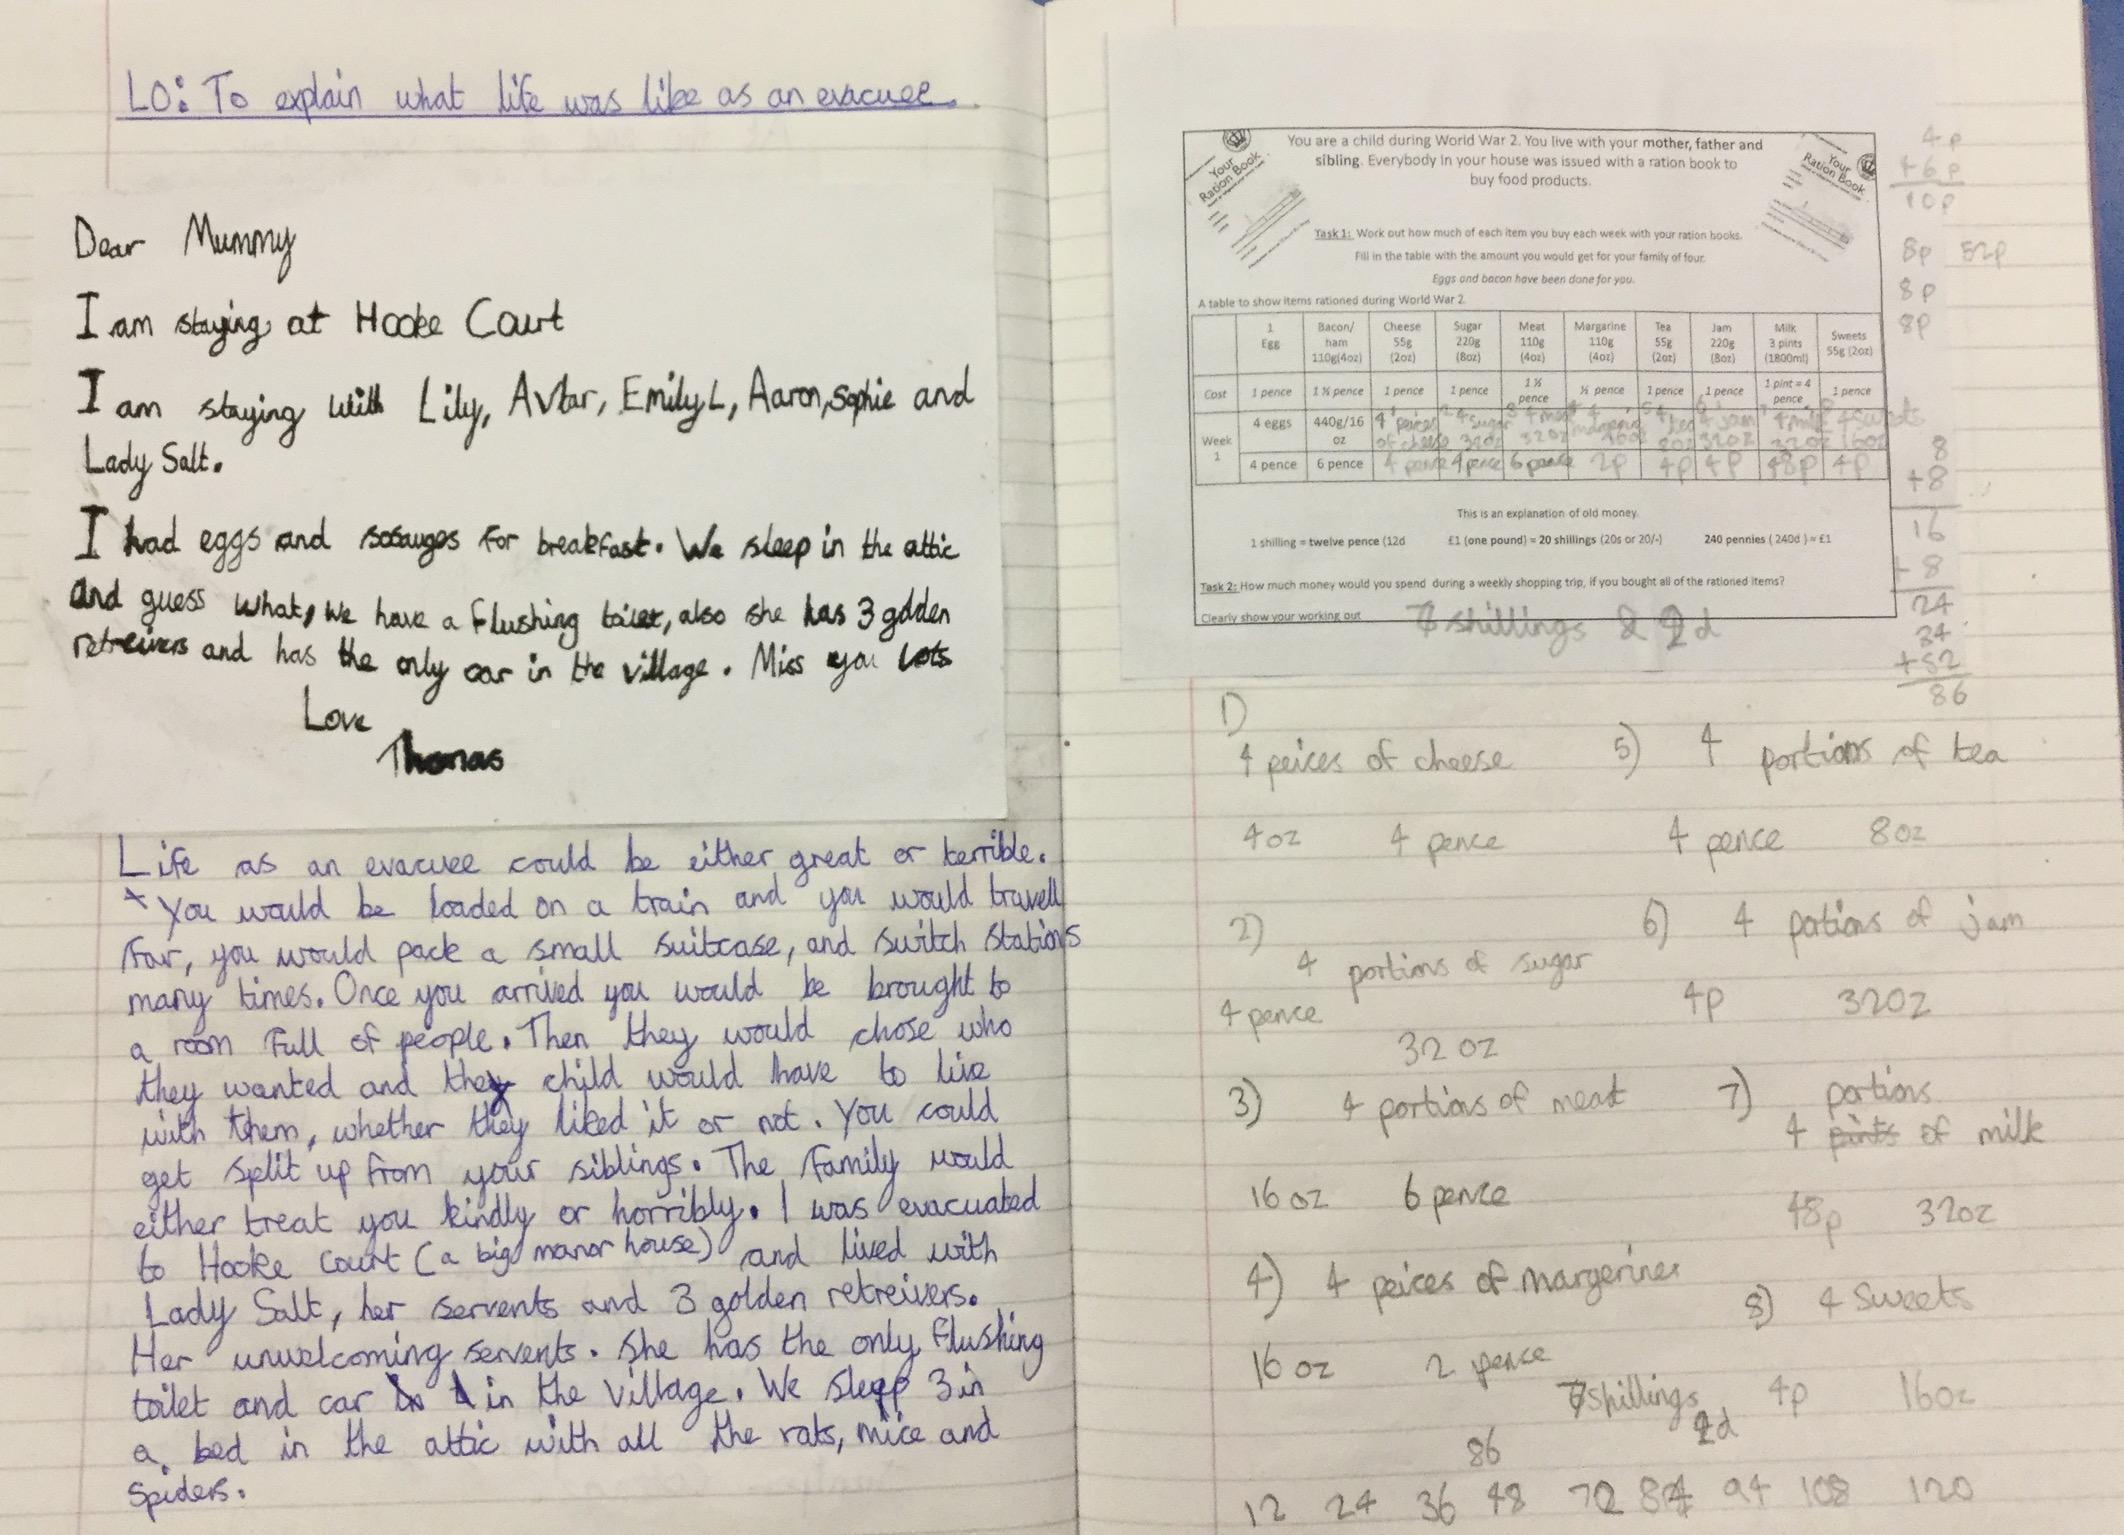 LO: To explain what life was like as an evacuee.
Dear Mummy
I am staying at Hooke Court
I am staying with Lily, Avtar, Emily L, Aaron, Sophie and
Lady Salt.
I had eggs and sosauges for breakfast. We sleep in the attic
and guess what, we have a flushing toilet, also she has 3 golden
retreivers and has the only car in the village. Miss you lots
Love
Thomas
Life as an evacuee could be either great or terrible.
You would be loaded on a train and you would travell
far, you would pack a small suitcase, and switch stations
many times. Once you arrived you would be brought to
a room full of people. Then they would chose who
they wanted and they child would have to live
with them, whether they liked it or not. You could
get split up from your siblings. The family would
either treat you kindly or horribly. I was evacuated
to Hooke Court (a big manor house) and lived with
Lady Salt, her servents and 3 golden retreivers.
Her unwelcoming servents. She has the only flushing
toilet and car in the village. We sleep 3 in
a bed in the attic with all the rats, mice and
spiders.
Your
Ration Book
You are a child during World War 2. You live with your mother, father and
sibling. Everybody in your house was issued with a ration book to
buy food products.
Your
Ration Book
Task 1: Work out how much of each item you buy each week with your ration books.
Fill in the table with the amount you would get for your family of four.
Eggs and bacon have been done for you.
A table to show items rationed during World War 2.
1 Egg Bacon/ham 110g(4oz) Cheese 55g (2oz) Sugar 220g (8oz) Meat 110g (4oz) Margarine 110g (4oz) Tea 55g (2oz) Jam 220g (8oz) Milk 3 pints (1800ml) Sweets 55g (2oz)
Cost 1 pence 1 ½ pence 1 pence 1 pence 1 ½ pence ½ pence 1 pence 1 pence 1 pint = 4 pence 1 pence
Week 1 4 eggs 440g/16 oz 4 peices of cheese 4 sugar 32oz 4 meat 32oz 4 16oz 4 tea 8oz 4 jam 32oz 4 milk 32oz 4 sweets 16oz
4 pence 6 pence 4 pence 4 pence 6 pence 2p 4p 4p 48p 4p
This is an explanation of old money.
1 shilling = twelve pence (12d £1 (one pound) = 20 shillings (20s or 20/-) 240 pennies ( 240d ) = £1
Task 2: How much money would you spend during a weekly shopping trip, if you bought all of the rationed items?
Clearly show your working out
7 shillings & 2d
4p
+6p
10p
8p 52p
8p
8p
8
+8
16
+8
24
34
+52
86
1)
4 peices of cheese
4oz 4 pence
2)
4 portions of sugar
4 pence
32 oz
3) 4 portions of meat
16 oz 6 pence
4) 4 peices of margerines
16 oz 2 pence
5) 4 portions of tea
4 pence 8oz
6) 4 portions of jam
4p 32oz
7) portions
4 pints of milk
48p 32oz
8) 4 Sweets
4p 16oz
7 shillings
2d
86
12 24 36 48 72 84 94 108 120